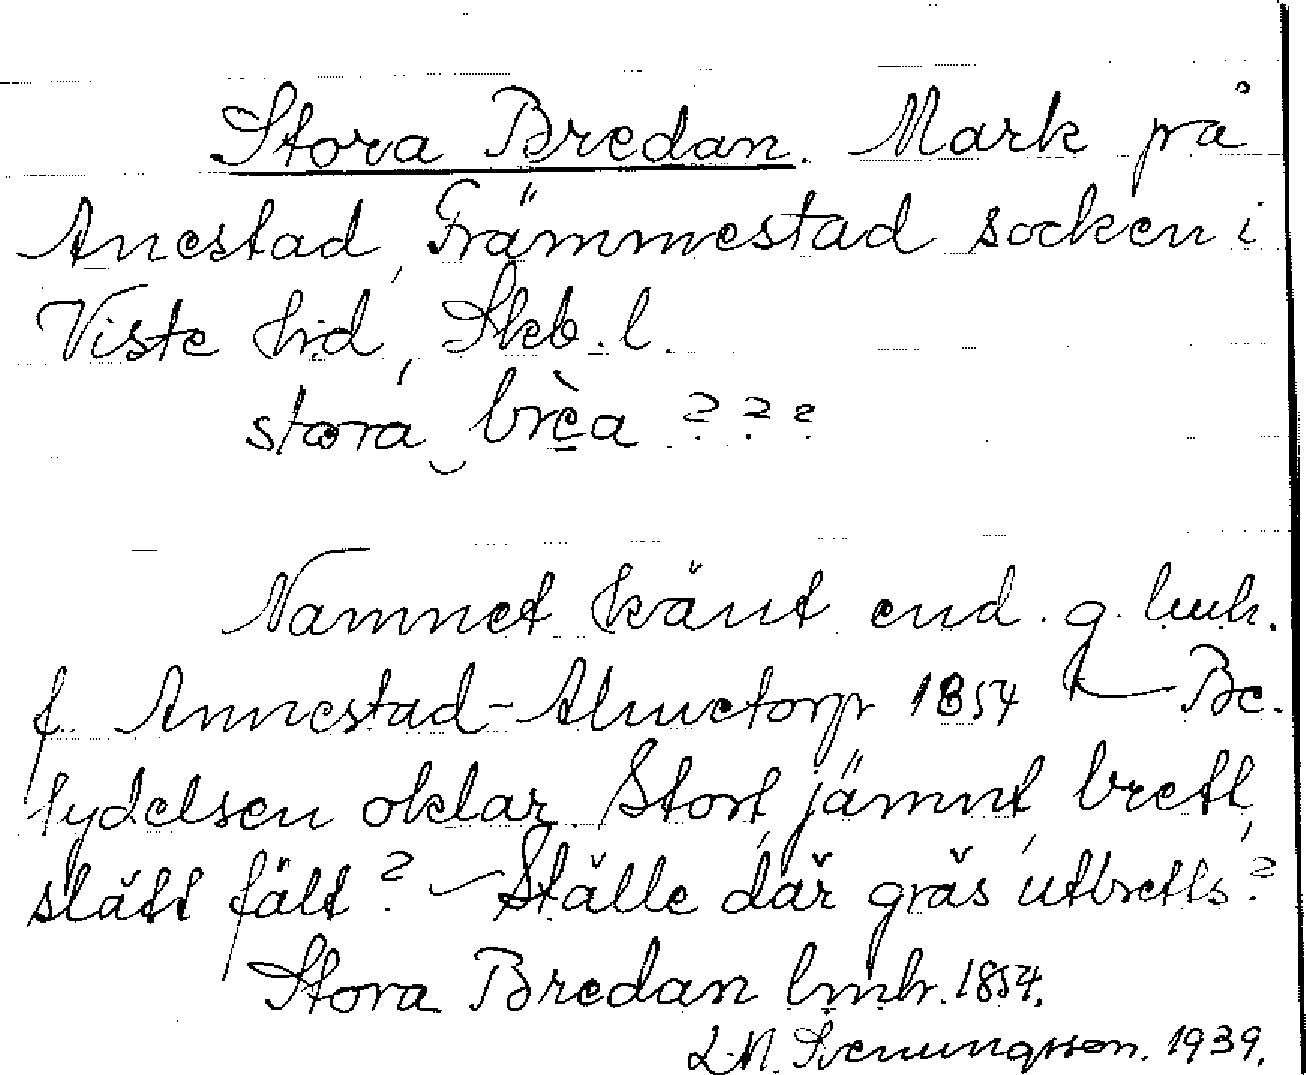 Stora Bredan. Mark på
Anestad, Främmestad socken i
Viste hd, Skb. l.
stora brèa ? ? ?
Namnet känt end. g. lmh.
f. Annestad-Almetorp 1854 — Be-
tydelsen oklar. Stort, jämnt, brett,
slätt fält? — Ställe där gräs utbretts?
Stora Bredan lmh. 1854.
L.N. Svenungsson. 1939.